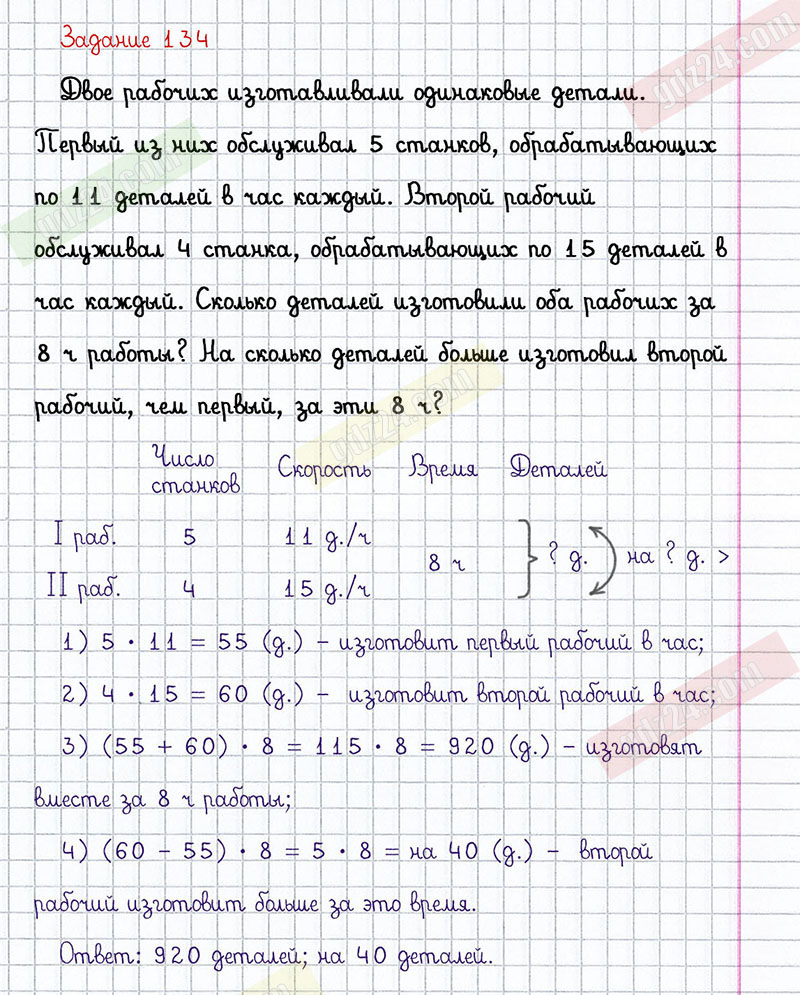 Задание 134
Двое рабочих изготавливали одинаковые детали.
Первый из них обслуживал 5 станков, обрабатывающих
по 11 деталей в час каждый. Второй рабочий
обслуживал 4 станка, обрабатывающих по 15 деталей в
час каждый. Сколько деталей изготовили оба рабочих за
8 ч работы? На сколько деталей больше изготовил второй
рабочий, чем первый, за эти 8 ч?
Число станков Скорость Время Деталей
I раб. 5 11 д./ч
8 ч } ? д. на ? д. >
II раб. 4 15 д./ч
1) 5 · 11 = 55 (д.) – изготовит первый рабочий в час;
2) 4 · 15 = 60 (д.) – изготовит второй рабочий в час;
3) (55 + 60) · 8 = 115 · 8 = 920 (д.) – изготовят
вместе за 8 ч работы;
4) (60 – 55) · 8 = 5 · 8 = на 40 (д.) – второй
рабочий изготовит больше за это время.
Ответ: 920 деталей; на 40 деталей.
gdz24.com
gdz24.com
gdz24.com
gdz24.com